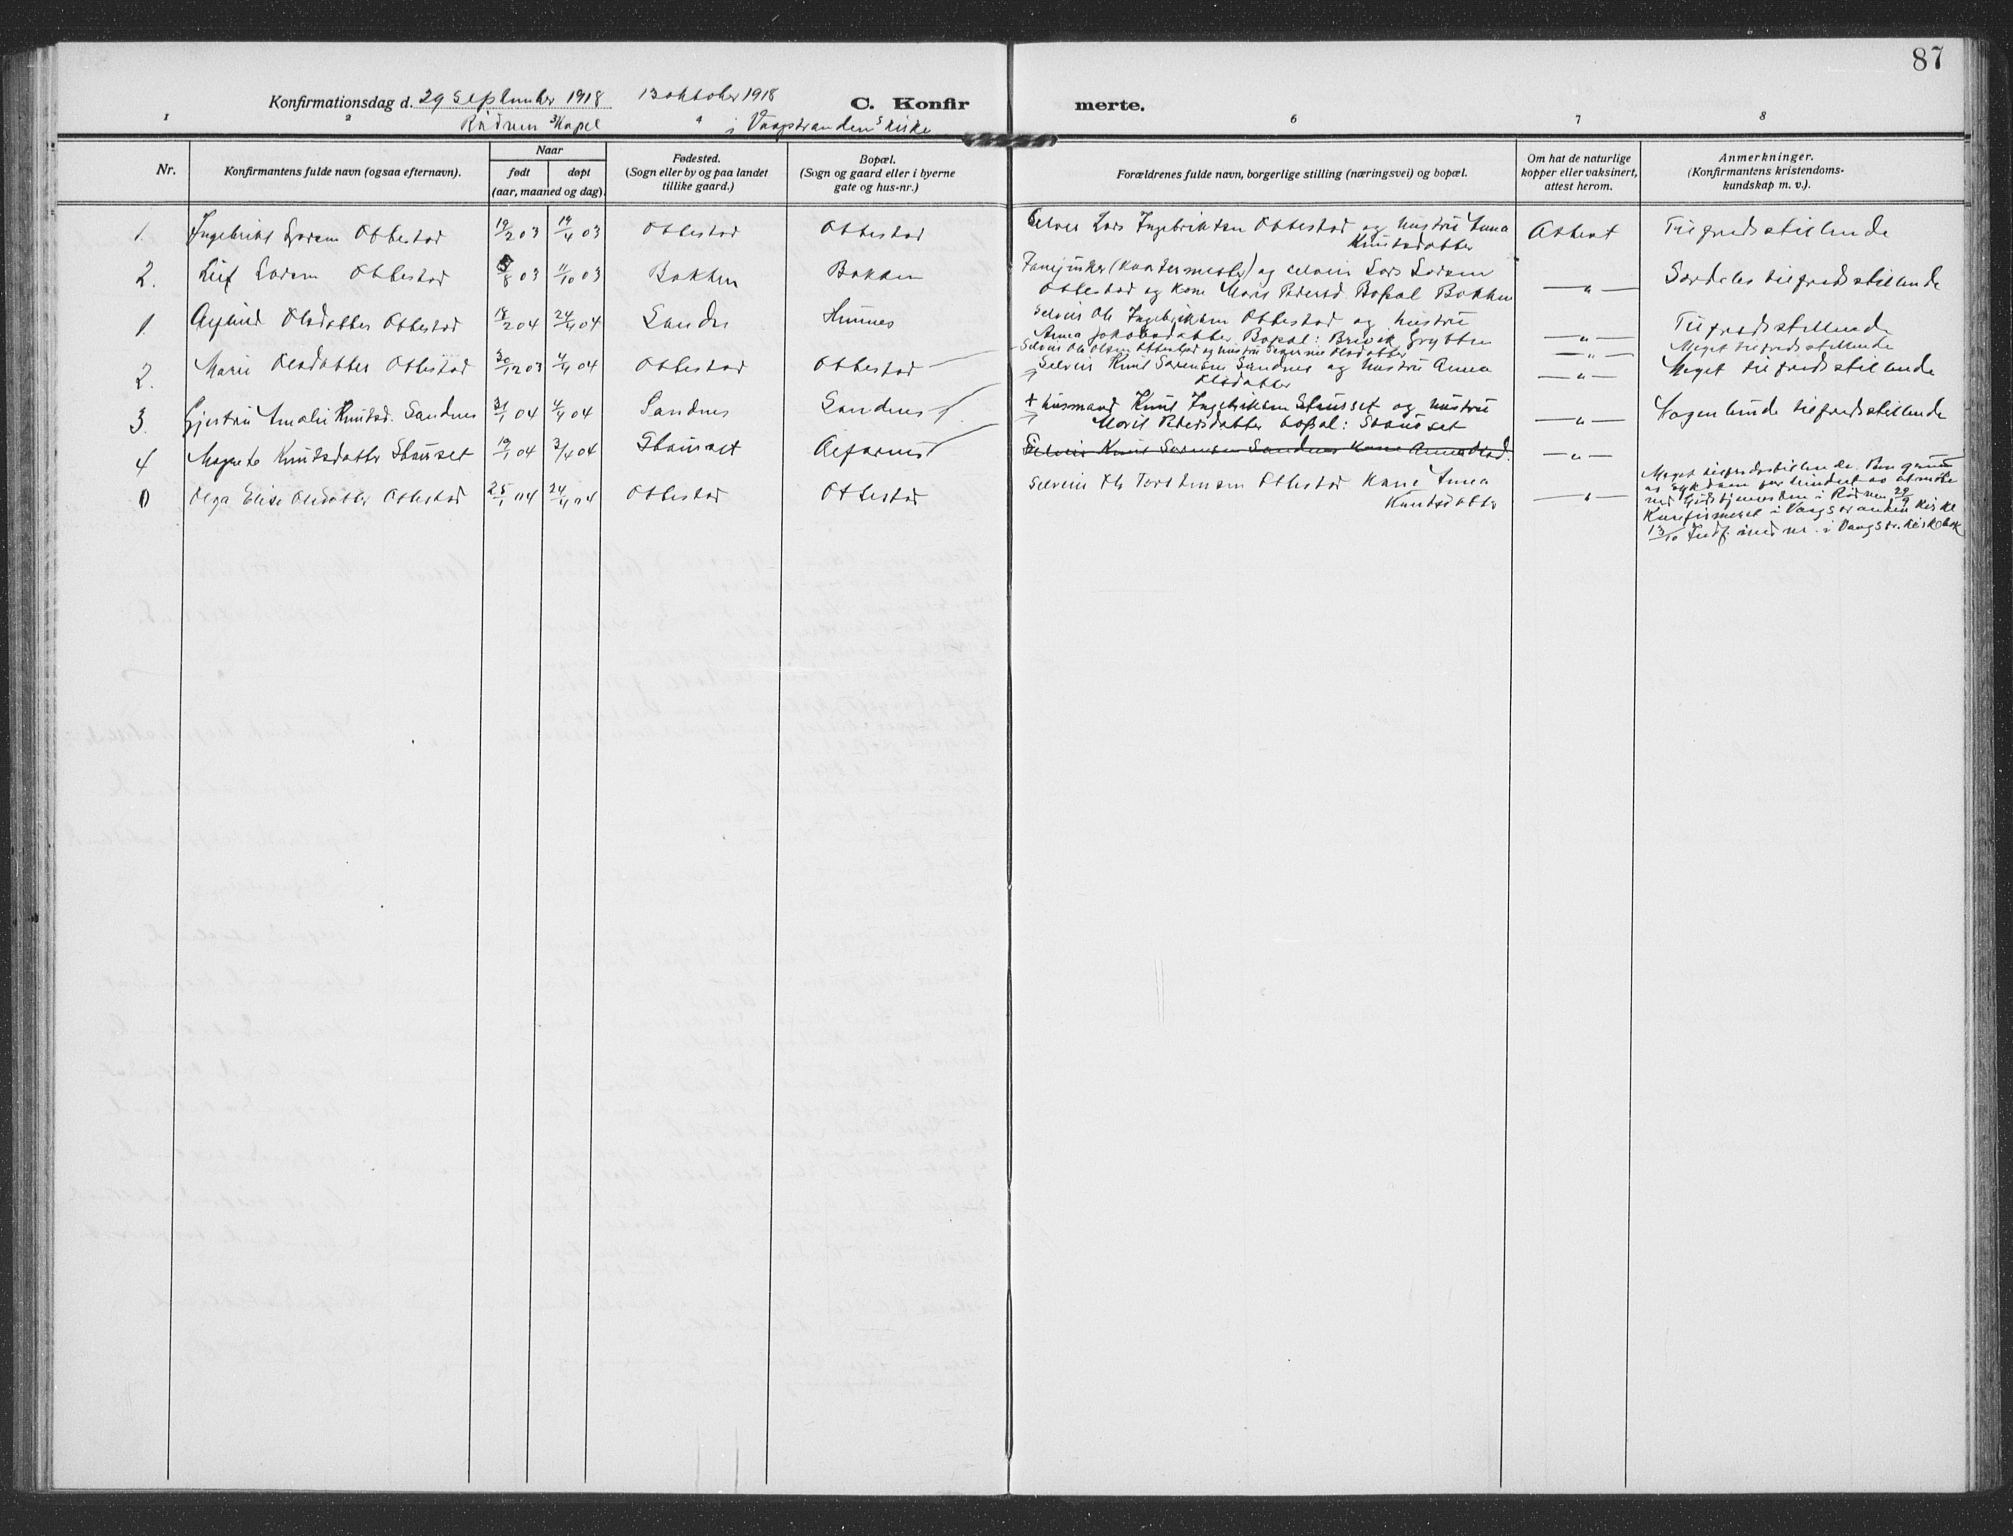 87
Konfirmationsdag d. 29 September 1918 13 oktober 1918 C. Konfir merte.
1 2 4 6 7 8
Kapel i Vaagstranden kirke
Nr. Konfirmantens fulde navn (ogsaa efternavn). Naar født døpt (aar, maaned og dag). Fødested. (Sogn eller by og paa landet tillike gaard.) Bopæl. (Sogn og gaard eller i byerne gate og hus-nr.) Forældrenes fulde navn, borgerlige stilling (næringsvei) og bopæl. Om hat de naturlige kopper eller vaksinert, attest herom. Anmerkninger. (Konfirmantens kristendoms- kundskap m. v.).
1. Ingebrikt Larsen Ottestad 19/2 03 19/4 03 Ottestad Ottestad Selveier Lars Ingebriktsen Ottestad og hustru Anna Knutsdatter Attest Tilfredsstillende
2. Leif Larsen Ottestad /8 03 11/10 03 Bakken Bakken og selveier Lars Larsen
Ottestad og kone Marit Pedersd. Bopæl Bakken —„— Særdeles tilfredsstillende
1 Olsdatter Ottestad 18/2 04 24/4 04 Sandnes Hunnes Selveier Ole Ingebriktsen Ottestad og hustru
Anna Jakobsdatter Bopæl: Brevik Grytten —„— Tilfredsstillende
Selveier Ole Olsen Ottestad og hustru Olsdatter —„— Meget tilfredsstillende
2. Marie Olsdatter Ottestad 30/12 03 4/4 04 Ottestad Ottestad Selveier Knut Sørensen Sandnes og hustru Anna Olsdatter —„— Meget tilfredsstillende
3. Gjertrud Amalie Knutsd. Sandnes 31/1 04 4/4 04 Sandnes Sandnes + husmand Knut Ingebriktsen Stauset og hustru
Marit Pedersdatter bopæl: Stauset —„— Nogenlunde tilfredsstillende
4 Magnete Knutsdatter Stauset 19/1 04 3/4 04 Stauset Selveier Knut Sørensen Sandnes Kone Anna Olsd. —„—
0 Olga Elise Olsdatter Ottestad 25/1 04 24/4 04 Ottestad Ottestad Selveier Ole Torstensen Ottestad Kone Anna Knutsdatter —„— Meget tilfredsstillende. Paa grund
av sykdom før hindret av at møte
ved Gudstjenesten i Rødven 29/9
Konfirmeret i Vaagstranden Kirke
13/10 Indf. med nr. i Vaagstr. kirkebok